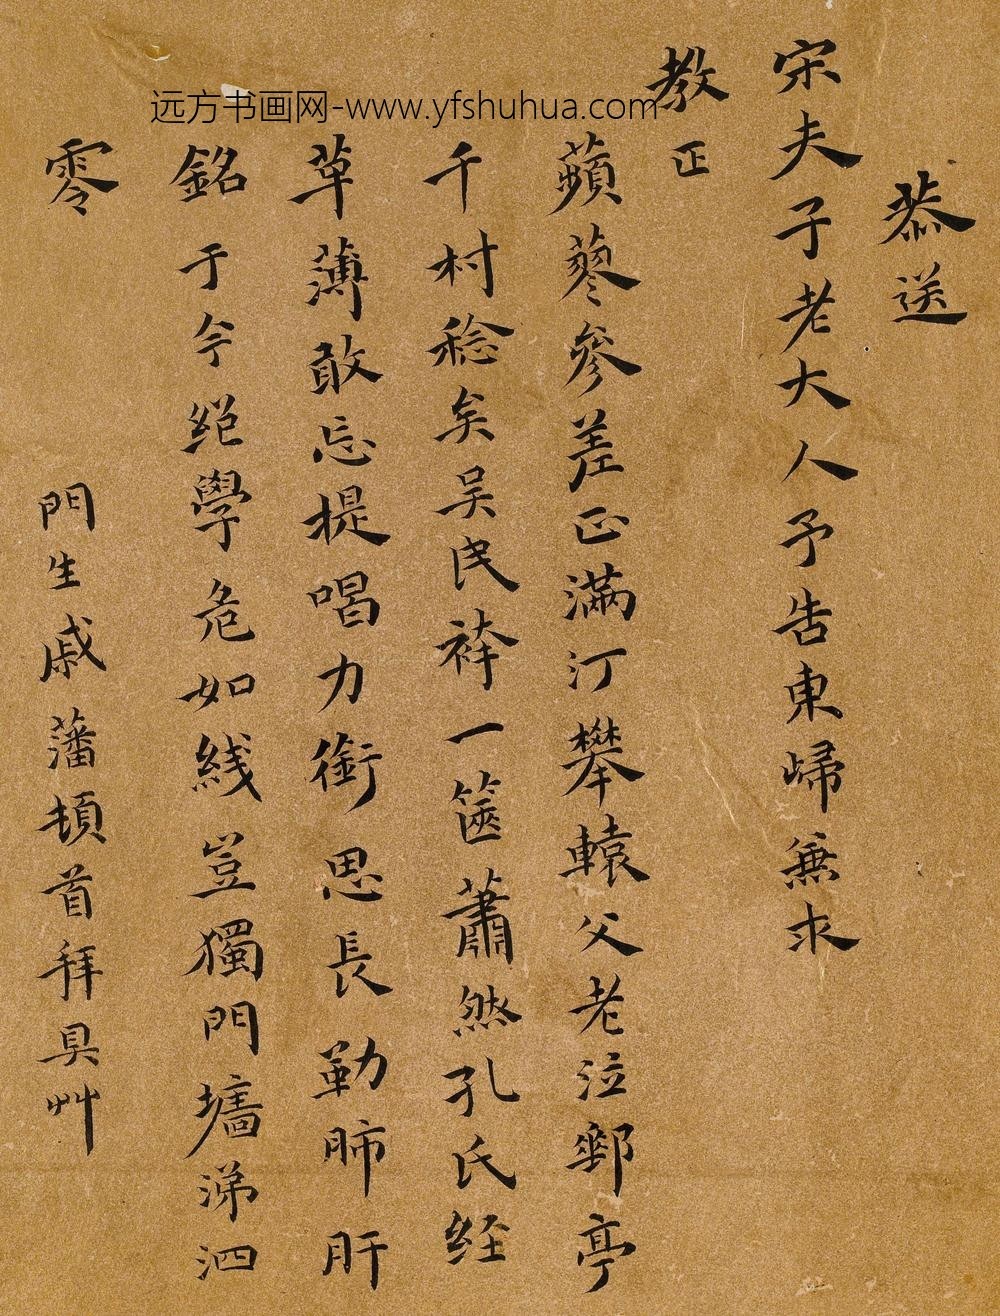 远方书画网-www.yfshuhua.com
恭送
宋夫子老大人予告東歸無求
教正
蘋蓼參差正滿汀攀轅父老泣郵亭
千村稔矣吴民袴一篋蕭然孔氏经
草薄敢忘提唱力銜思長勒肺肝
銘于今绝學危如线豈獨門墻涕泗
零
門生戚藩頓首拜具艸